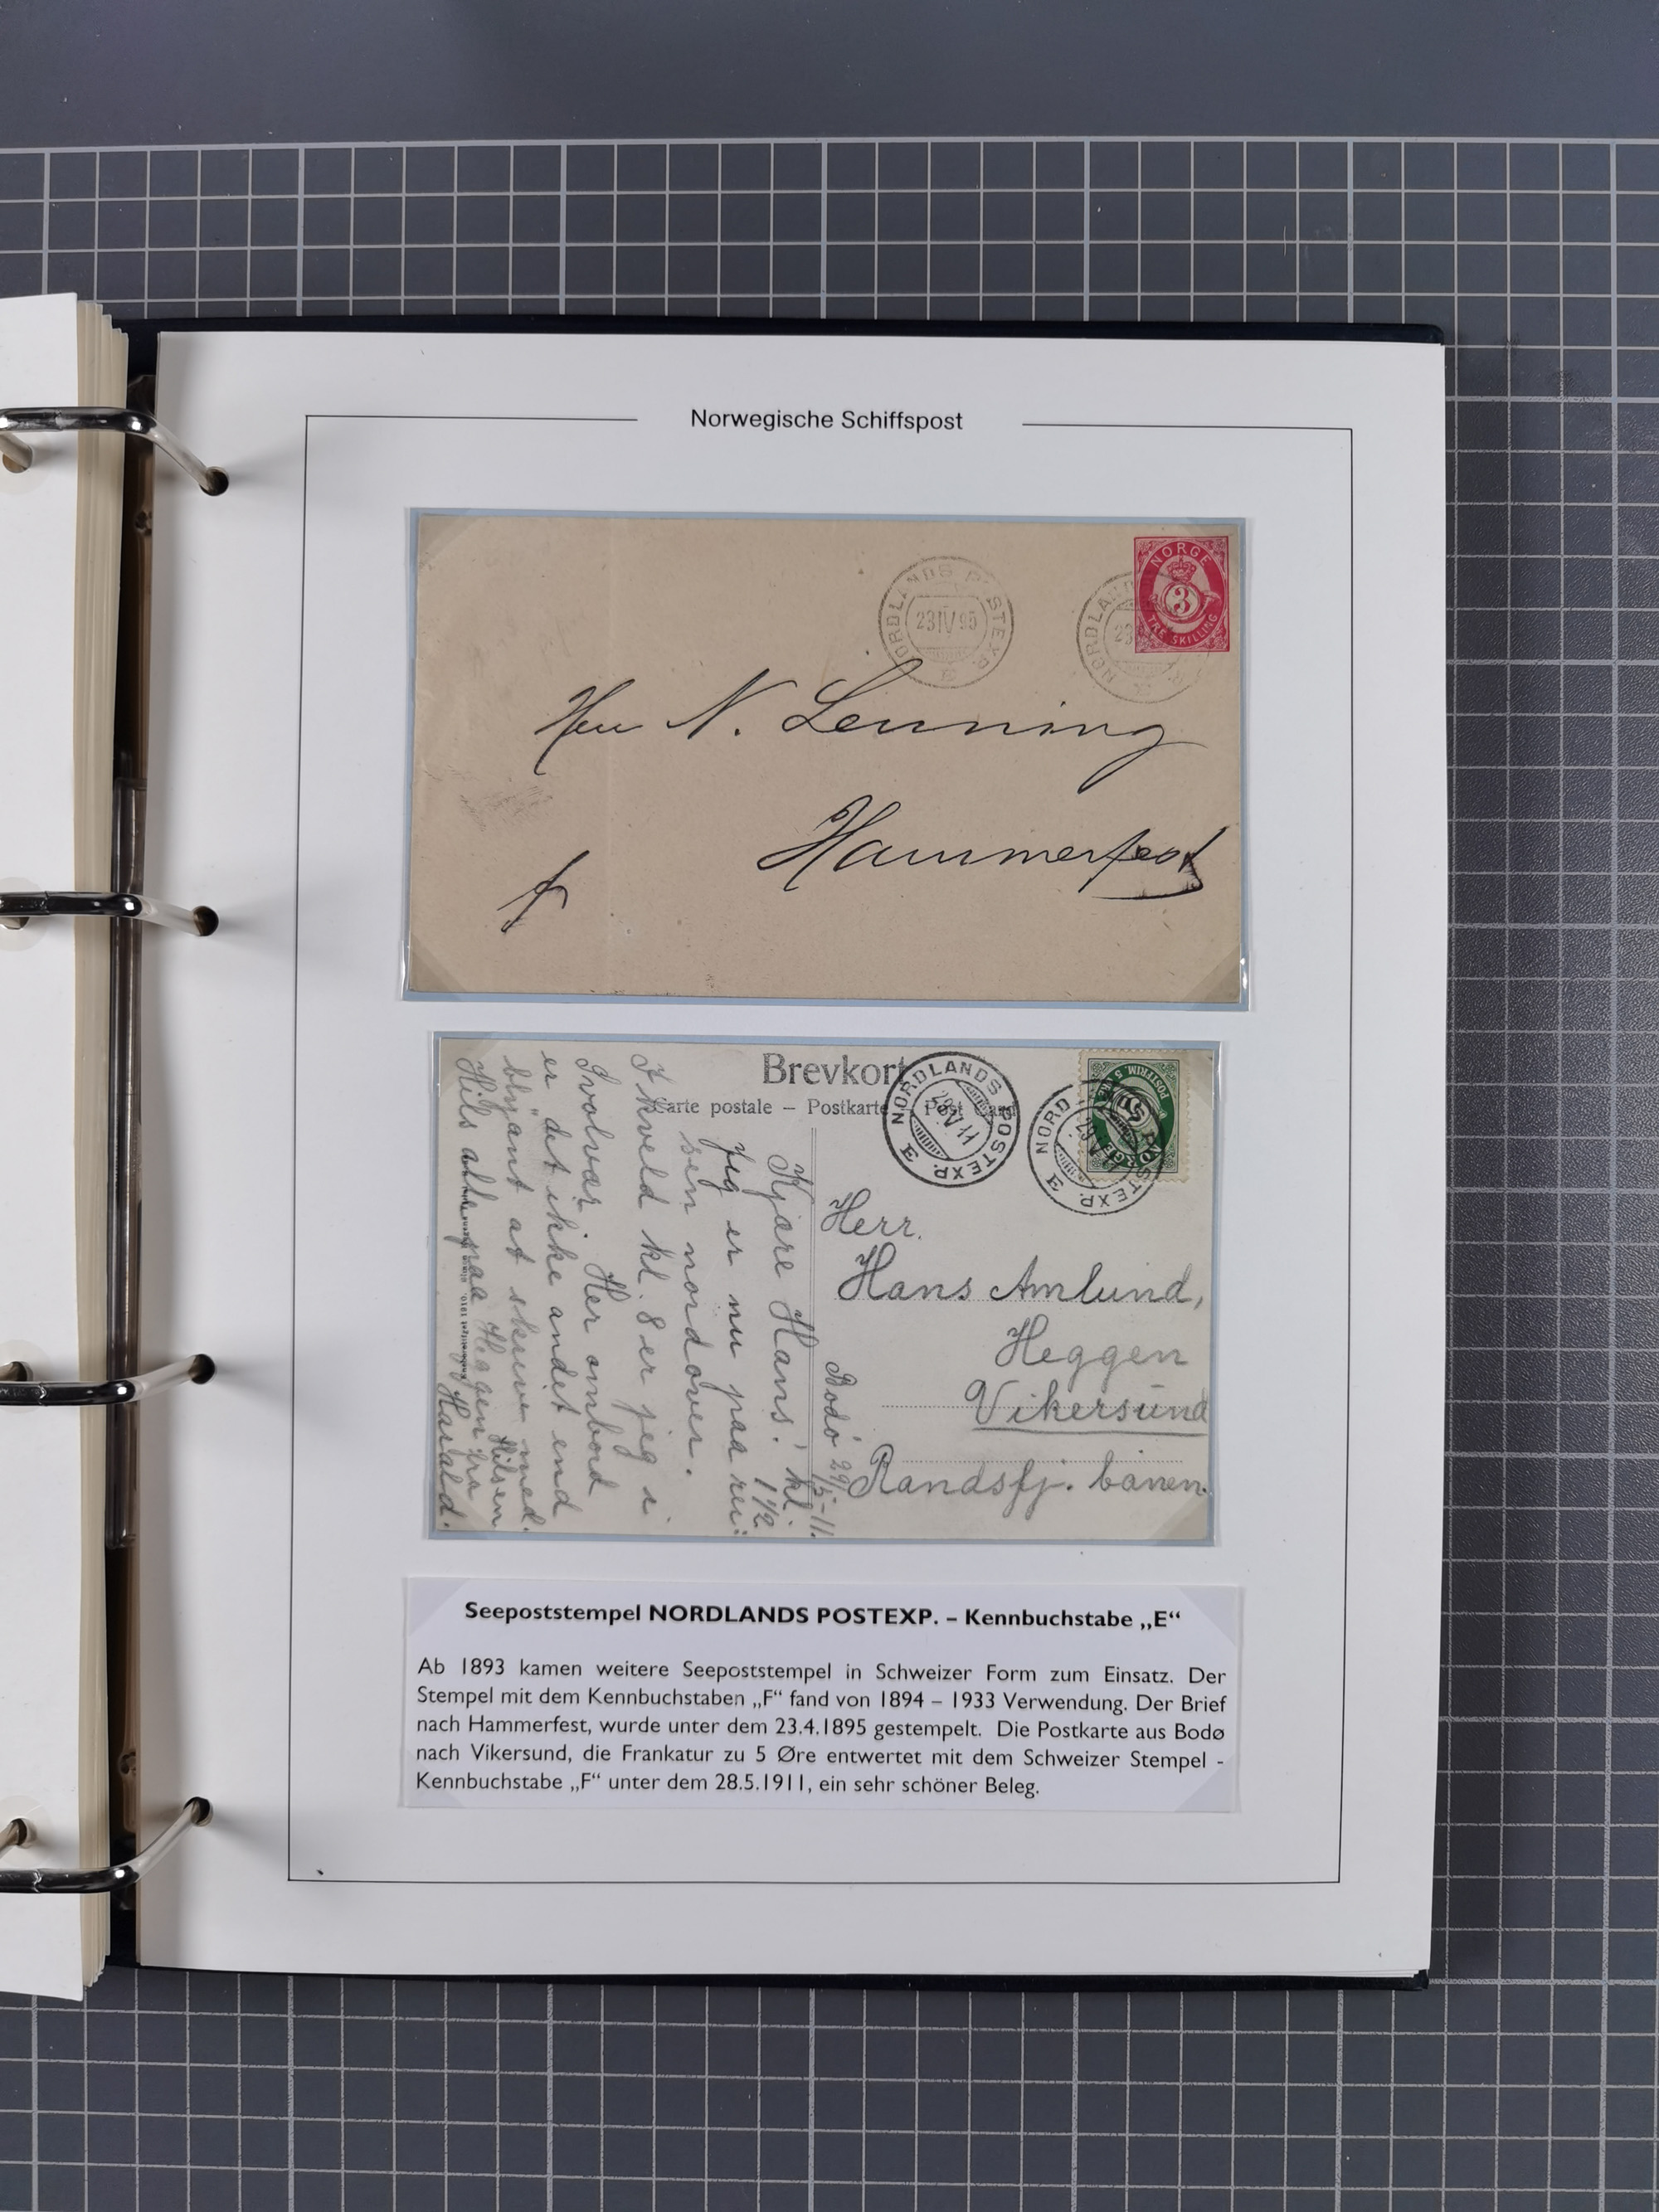 Norwegische Schiffspost
NORDLANDS POSTEXP.
23 IV 95
NORGE
3
TRE SKILLING
Herr N. Lenning
Hammerfest
Brevkort
Carte postale – Postkarte – Post Card
NORDLANDS POSTEXP. E
29 V 11
Herr.
Hans Amlund,
Heggen
Vikersund
Randsfj. banen.
Bodö 29/5-11.
kl. 1 1/2
Kjære Hans!
Jeg er nu paa rei-
sen nordover.
I kveld kl. 8 er jeg i
Svolvær. Her ombord
er det ikke andet end
blyant at skrive med.
Hils alle paa Heggen fra
Hilsen
Harald.
Seepoststempel NORDLANDS POSTEXP. – Kennbuchstabe „E“
Ab 1893 kamen weitere Seepoststempel in Schweizer Form zum Einsatz. Der
Stempel mit dem Kennbuchstaben „F“ fand von 1894 – 1933 Verwendung. Der Brief
nach Hammerfest, wurde unter dem 23.4.1895 gestempelt. Die Postkarte aus Bodø
nach Vikersund, die Frankatur zu 5 Øre entwertet mit dem Schweizer Stempel -
Kennbuchstabe „F“ unter dem 28.5.1911, ein sehr schöner Beleg.